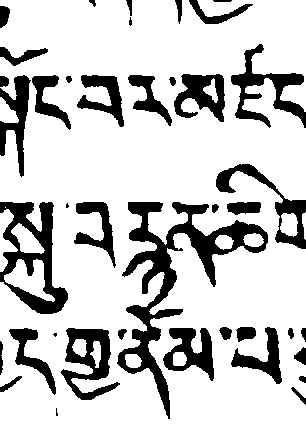 སྐོང་བར་མཛད
སྐུ་བརྙན་ཆི
ང་གྱ་ནོམ་པ་